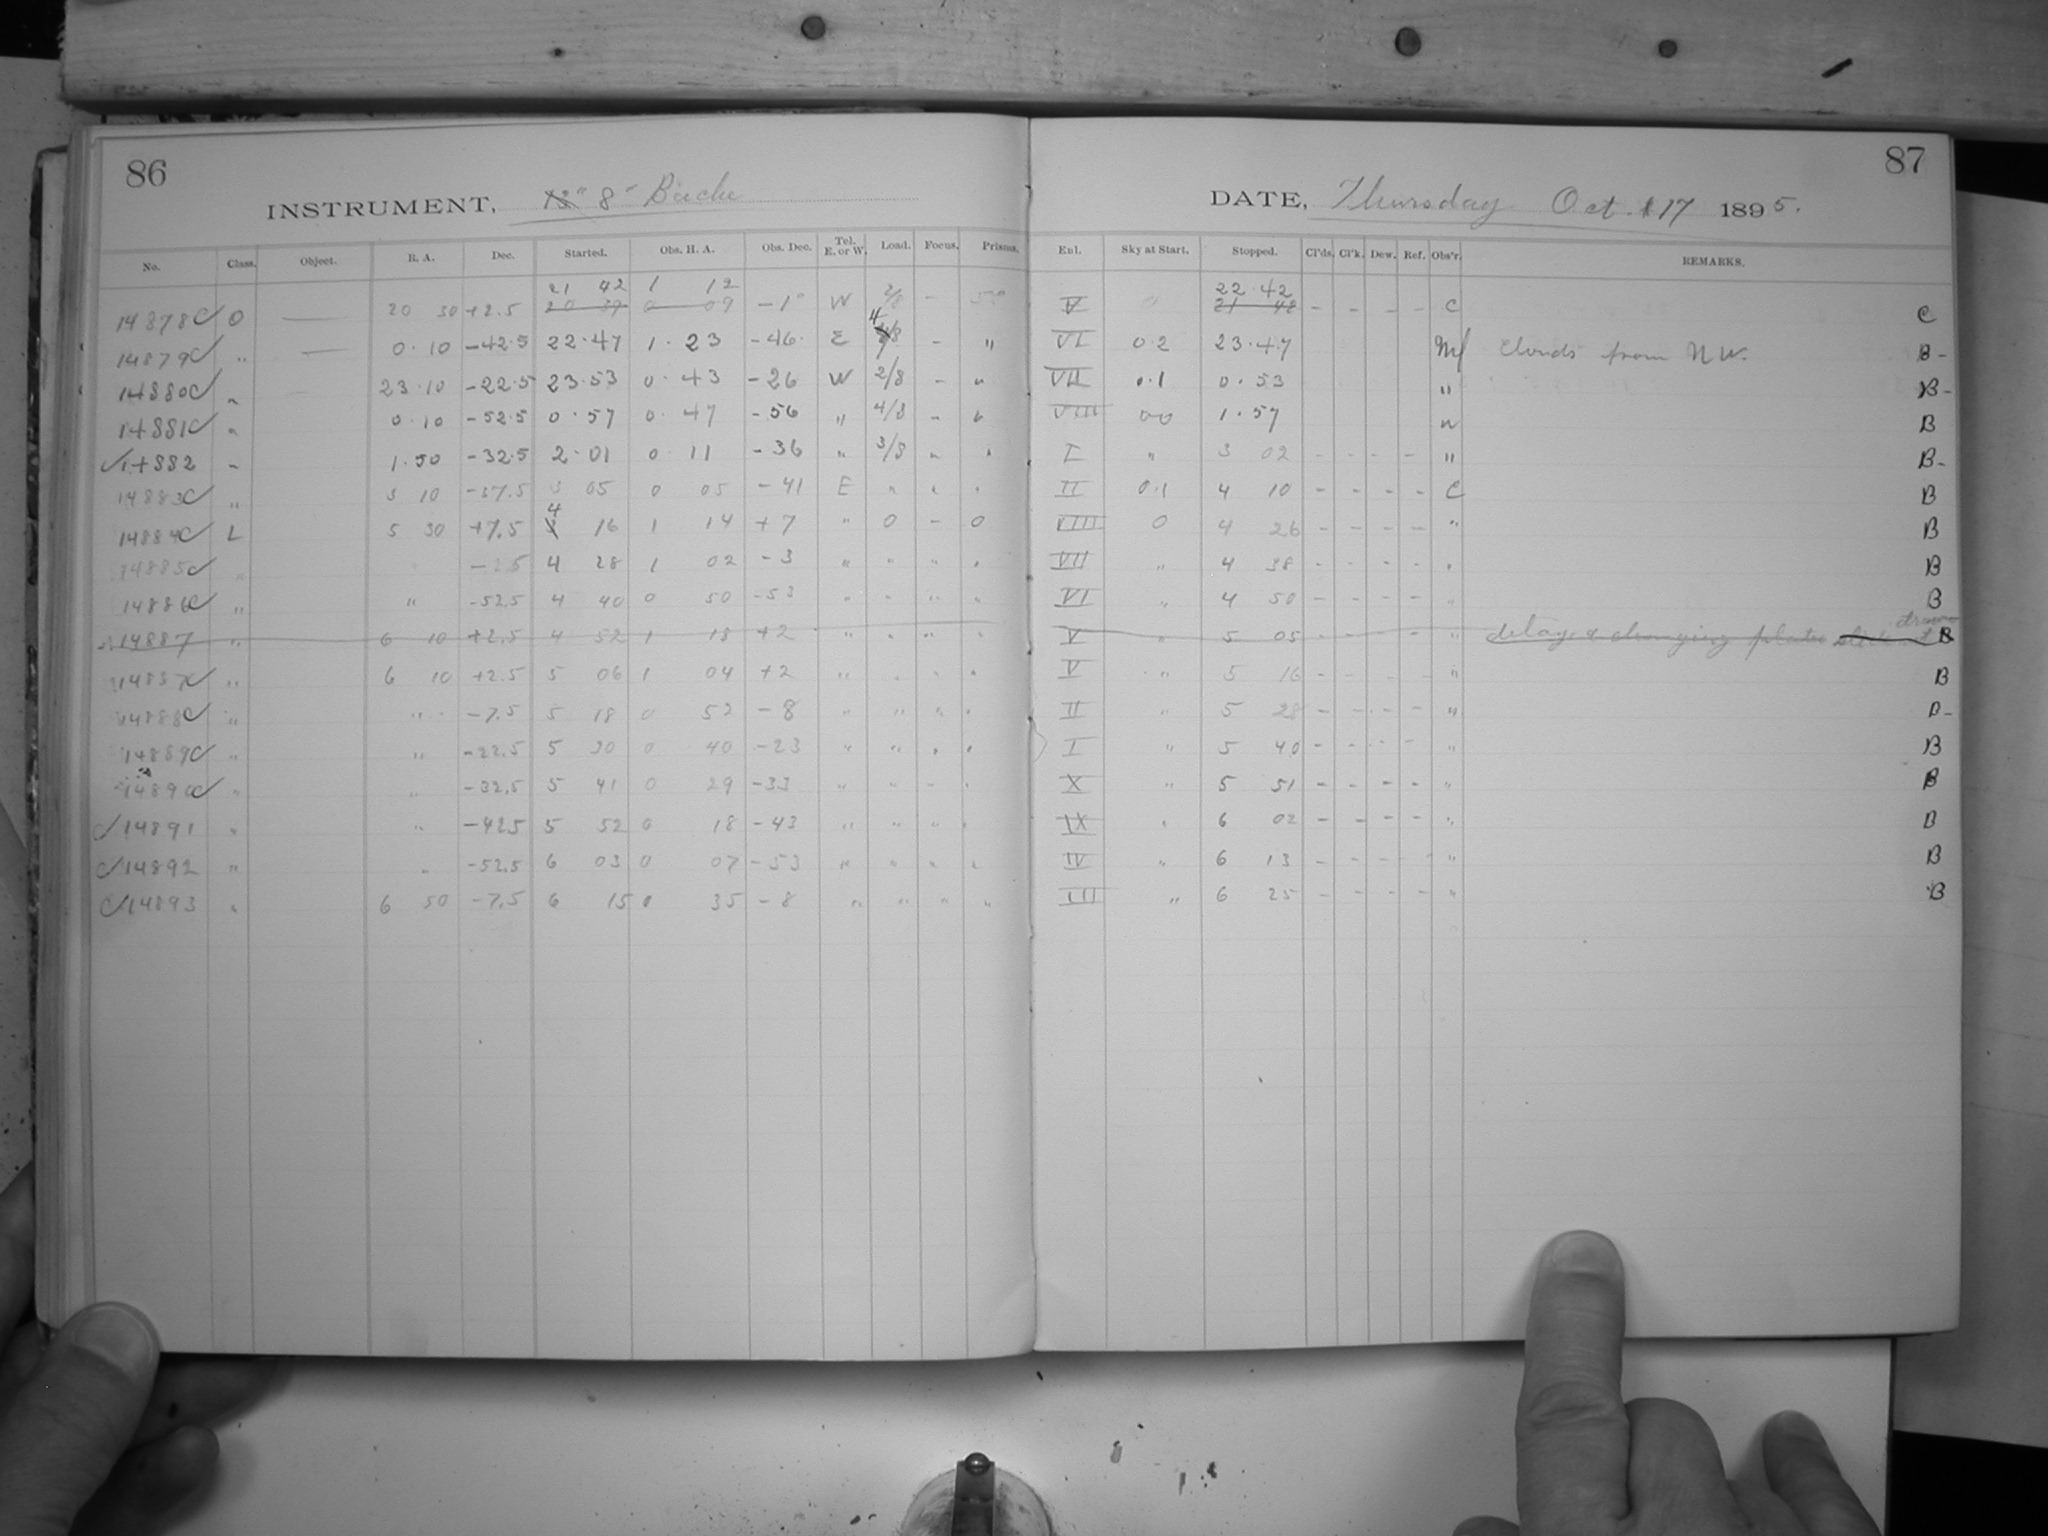 86
INSTRUMENT, 8" Bache
No. Class. Object. R. A. Dec. Started. Obs. H. A. Obs. Dec. Tel. E. or W. Load. Focus. Prisms.
21 42 1 12
14878C O — 20 30 +2.5 20 39 0 09 -1° W 2/8 -
14879C " — 0.10 -42.5 22.47 1.23 -46. E 4/8 - "
14880C " 23.10 -22.5 23.53 0.43 -26 W 2/8 - "
14881C " 0.10 -52.5 0.57 0.47 -56 " 4/8 - "
C14882 " 1.50 -32.5 2.01 0 11 -36 " 3/8 " "
14883C " 3 10 -37.5 3 05 0 05 -41 E " " "
14884C L 5 30 +7.5 4 16 1 14 +7 " 0 - 0
14885C " -2.5 4 28 1 02 -3 " " " "
14886C " " -52.5 4 40 0 50 -53 " " " "
14887 " 6 10 +2.5 4 52 1 18 +2 " " " "
14887C " 6 10 +2.5 5 06 1 04 +2 " " " "
14888C " " -7.5 5 18 0 52 -8 " " " "
14889C " " -22.5 5 30 0 40 -23 " " " "
14890C " " -32.5 5 41 0 29 -33 " " - "
C14891 " " -42.5 5 52 0 18 -43 " " " "
C14892 " " -52.5 6 03 0 07 -53 " " " "
C14893 " 6 50 -7.5 6 15 0 35 -8 " " " "
87
DATE, Thursday Oct. 17 1895.
Eul. Sky at Start. Stopped. Cl'ds. Cl'k. Dew. Ref. Obs'r. REMARKS.
22.42
V 0 21 42 - - - - C C
VI 0.2 23.47 M Clouds from N W. B-
VII 0.1 0.53 " B-
VIII 00 1.57 " B
I " 3 02 - - - - " B-
II 0.1 4 10 - - - - C B
VIII 0 4 26 - - - - " B
VII " 4 38 - - - - " B
VI " 4 50 - - - - " B
V " 5 05 - - - - " delay & changing plates B
V " 5 16 - - - - " B
II " 5 28 - - - - " B-
I " 5 40 - - - - " B
X " 5 51 - - - - " B
IX " 6 02 - - - - " B
IV " 6 13 - - - - " B
III " 6 25 - - - - " B